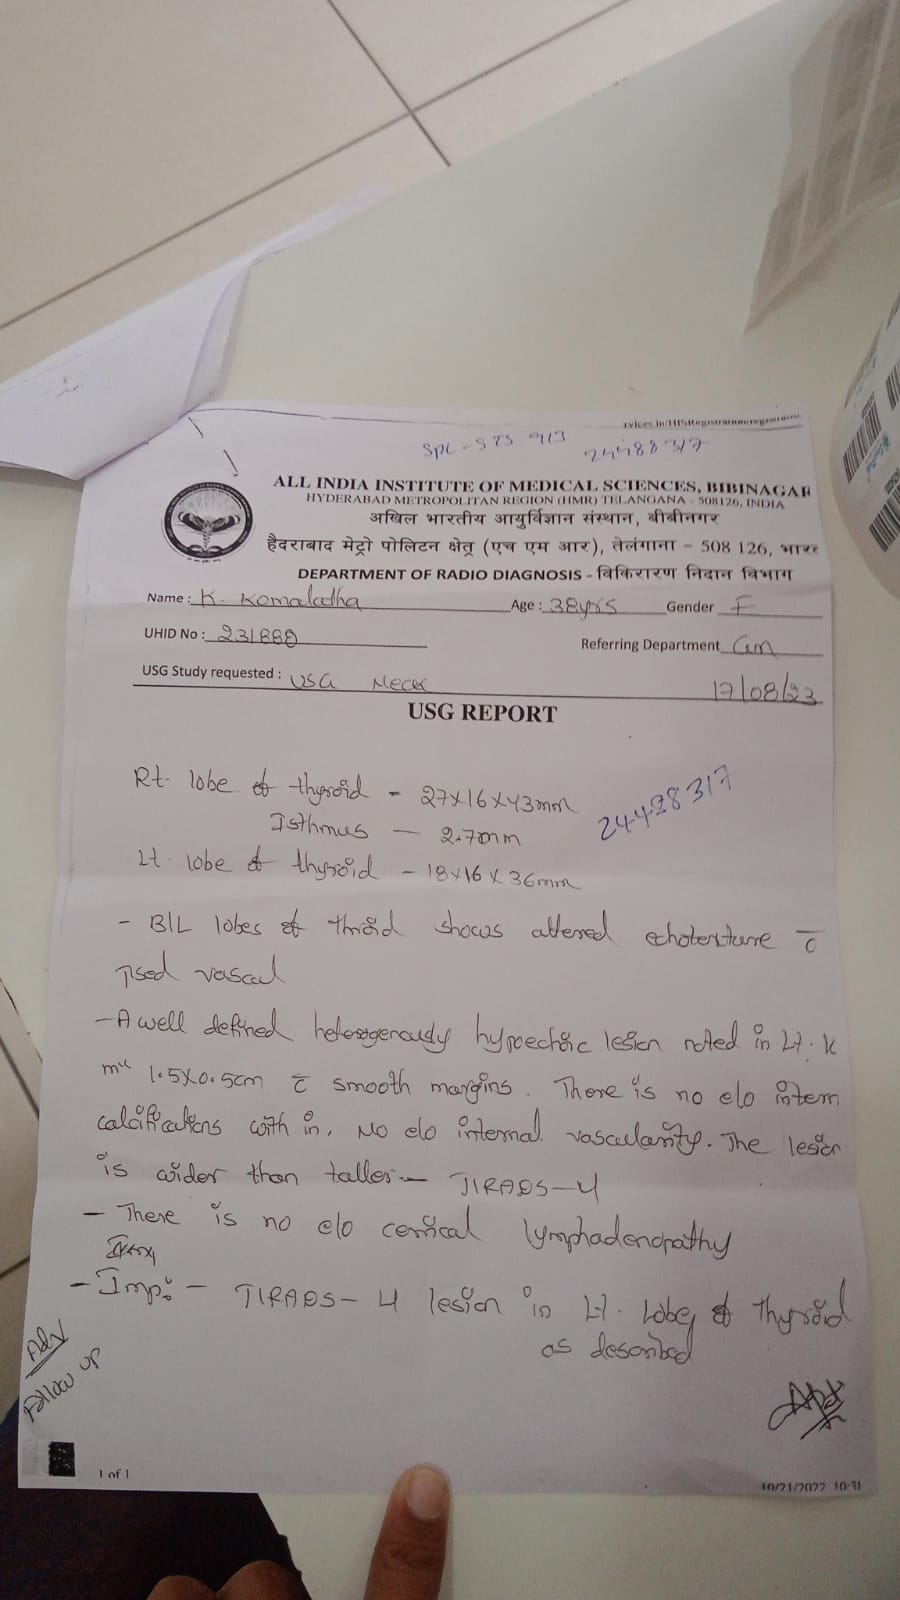 SPL-573 913
24488317
ALL INDIA INSTITUTE OF MEDICAL SCIENCES, BIBINAGAR
HYDERABAD METROPOLITAN REGION (HMR) TELANGANA - 508126, INDIA
अखिल भारतीय आयुर्विज्ञान संस्थान, बीबीनगर
हैदराबाद मेट्रो पोलिटन क्षेत्र (एच एम आर), तेलंगाना - 508 126, भारत
DEPARTMENT OF RADIO DIAGNOSIS - विकिरारण निदान विभाग
Name : K. Komalatha Age : 38yrs Gender F
UHID No : 231880 Referring Department Gm
USG Study requested : USG Neck 17/08/23
USG REPORT
Rt lobe of thyroid - 27x16x43mm
24488317
Isthmus — 2.7mm
Lt. lobe of thyroid - 18x16x36mm
- B/L lobes of throid shows altered echotexture c̄
↑sed vascul
- A well defined heterogenously hypoechoic lesion noted in Lt.
1.5x0.5cm c̄ smooth margins. There is no e/o intern
calcifications with in. No e/o internal vascularity. The lesion
is wider than taller — TIRADS-4
- There is no e/o cervical lymphadenopathy
- Imp:- TIRADS-4 lesion in Lt. lobe of thyroid
as described
Adv
Follow up
1 of 1
10/21/2022 10:31